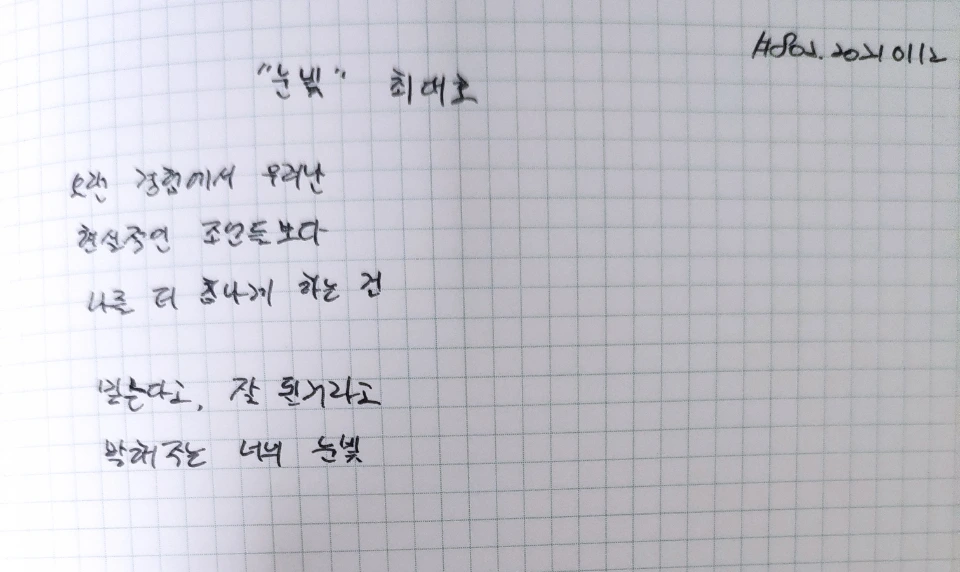 20210112
"눈빛" 최대호
오랜 경험에서 우러난
현실적인 조언들보다
나를 더 힘나게 하는 건
믿는다고, 잘 될거라고
말해주는 너의 눈빛